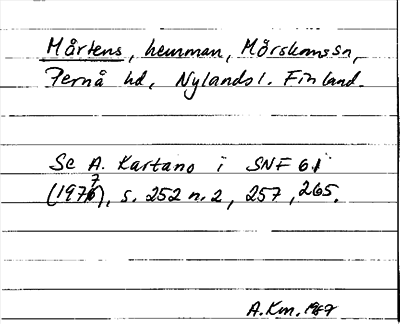 Mårtens, hemman, Mörskomssn,
Pernå hd, Nylands l. Finland.
Se A. Kartano i SNF 61
(1977), s. 252 n. 2, 257, 265.
A. Km. 1989